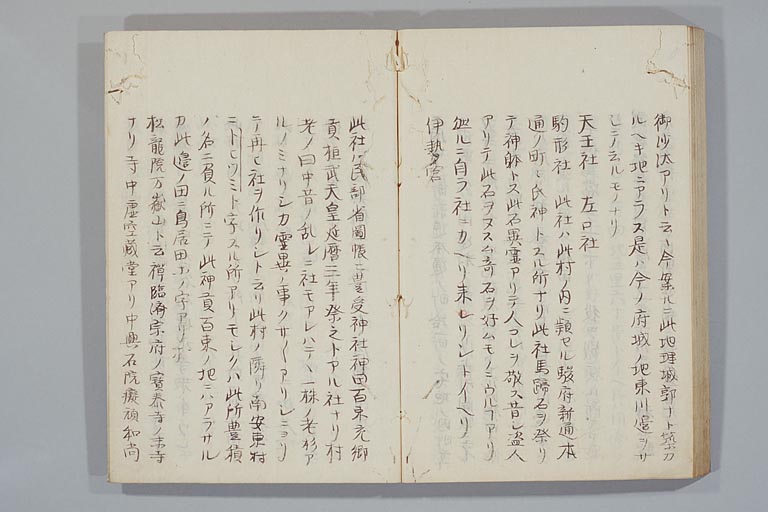 御沙汰アリト云々今案ルニ此地理城郭ナト築カ
ルヘキ地ニアラス是ハ今ノ府城ノ地東川邊ヲサ
シテ云ルモノナリ
天王社 左口社
駒形社 此社ハ此村ノ内ニ類セル駿府新通本
通ノ町々氏神トスル所ナリ此社馬蹄石ヲ祭リ
テ神躰トス此石異霊アリテ人コレヲ敬ス昔シ盗人
アリテ此石ヲヌスム奇石ヲ好ムモノニウルコアリ
処ルニ自ラ社ニカヘリ来レリントイヘリ
伊勢宮
此社ハ民部省圖帳ニ豊受神社神田百束充郷
貢桓武天皇延暦三年祭之トアル社ナリ村
老ノ曰中昔ノ乱レニ社モアレハテヽ一株ノ老杉ア
ルノミナリシカ霊異ノ事クサ〱アリシニヨリ
テ再ヒ社ヲ作リシト云リ此村ノ隣リ南安東村
ニトヒツミト字スル所アリモシクハ此所豊積
ノ名ニ負ル所ニテ此神貢百束ノ地ニハアラサル
カ此邉ノ田ニ鳥居田ホノ字アリ
松龍院万嶽山ト云禅臨済宗府ノ寳泰寺ノ末寺
ナリ寺中虚空蔵堂アリ中興石院癡頑和尚